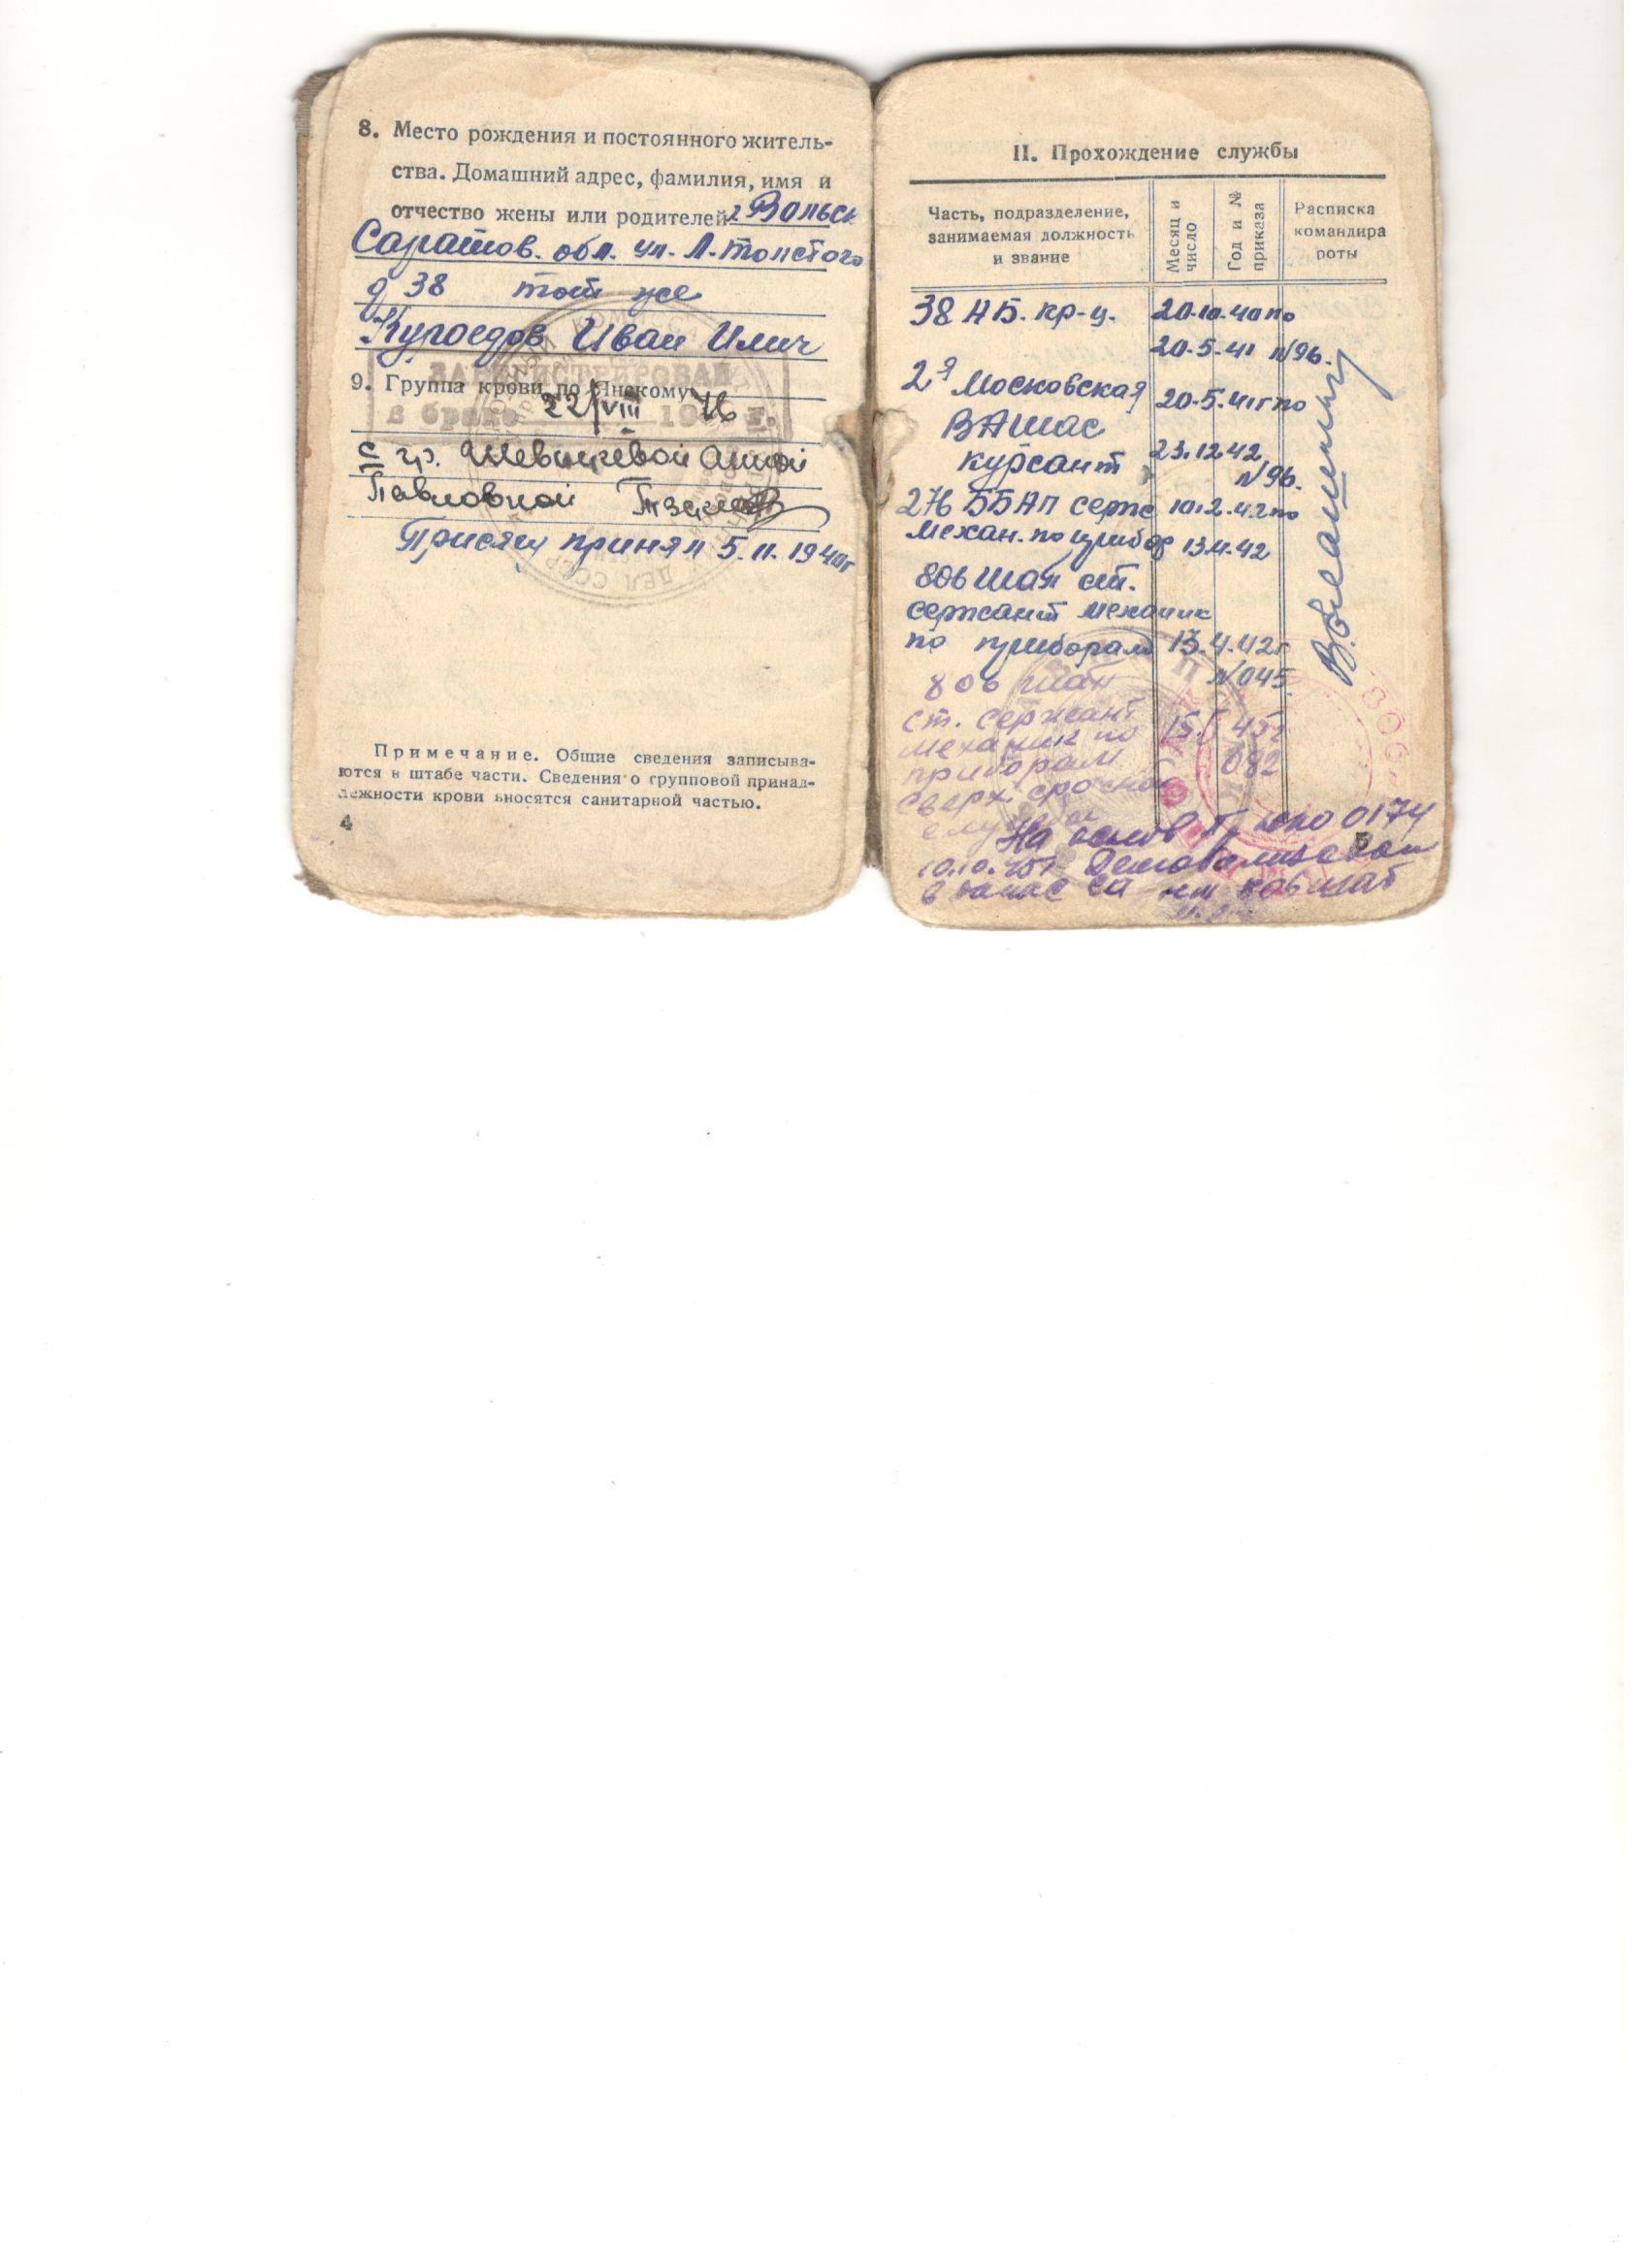 8. Место рождения и постоянного житель-
ства. Домашний адрес, фамилия, имя и
отчество жены или родителей г Вольск
Саратов. обл. ул. Л. Толстого
д 38 тот же
Куроедов Иван Илич
9. Группа крови по Янскому
ЗАРЕГИСТРИРОВАН
в браке 22/VIII 1946 г.
с гр. Анной
Павловной
Присягу принял 5.11.1940г
Примечание. Общие сведения записыва-
ются в штабе части. Сведения о групповой принад-
лежности крови вносятся санитарной частью.
4
II. Прохождение службы
Часть, подразделение, занимаемая должность и звание
Месяц и число
Год и № приказа
Расписка командира роты
38 АБ. кр-ц. 20.10.40 по
20.5.41 №96.
2я Московская 20.5.41г по
ВАШАС
23.12.42
курсант №96.
276 ББАП серж 10.2.42 по
механ. по прибор 13.4.42
806 шап ст.
сержант механик
по приборам 13.4.42г
№045.
806 шап
ст. сержант 15.5 45г
механик по
приборам 082
сверх. срочной
службы
На основ 0174
10.10.45г Демобилизован
в запас
806
5